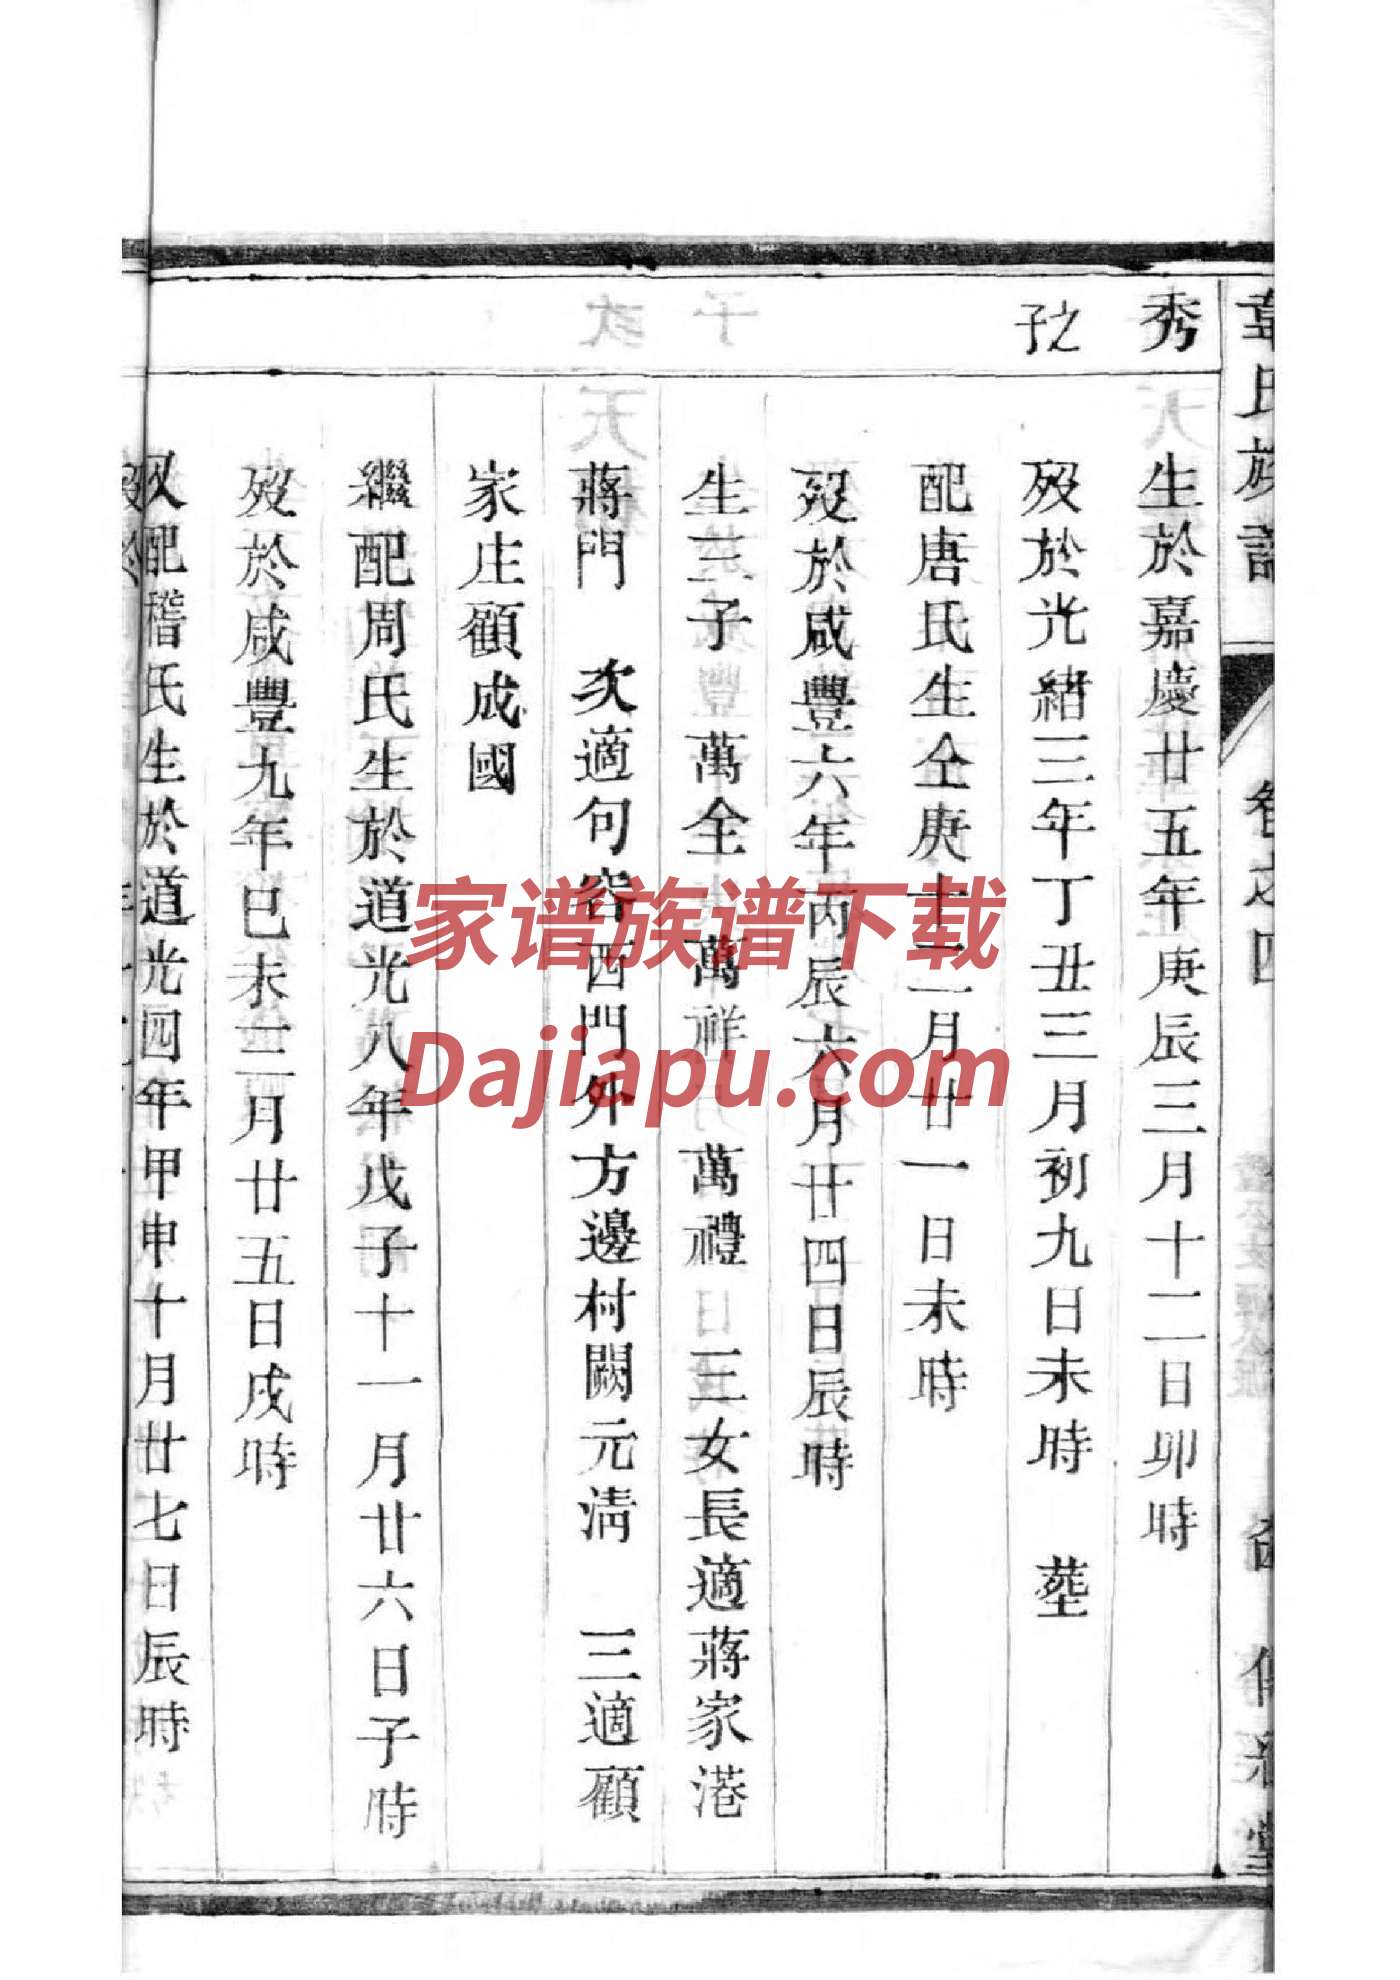 韋氏族譜 卷之四
秀
之子
生於嘉慶廿五年庚辰三月十二日卯時
歿於光緒三年丁丑三月初九日未時 塟
配唐氏生仝庚十二月廿一日未時
歿於咸豐六年丙辰六月廿四日辰時
生三子 萬全 萬祥 萬禮 三女長適蔣家港
蔣門 次適句容西門外方邊村闕元淸 三適顧
家庄顧成國
繼配周氏生於道光八年戊子十一月廿六日子時
歿於咸豐九年巳未三月廿五日戌時
又配稽氏生於道光四年甲申十月廿七日辰時
家谱族谱下载
Dajiapu.com